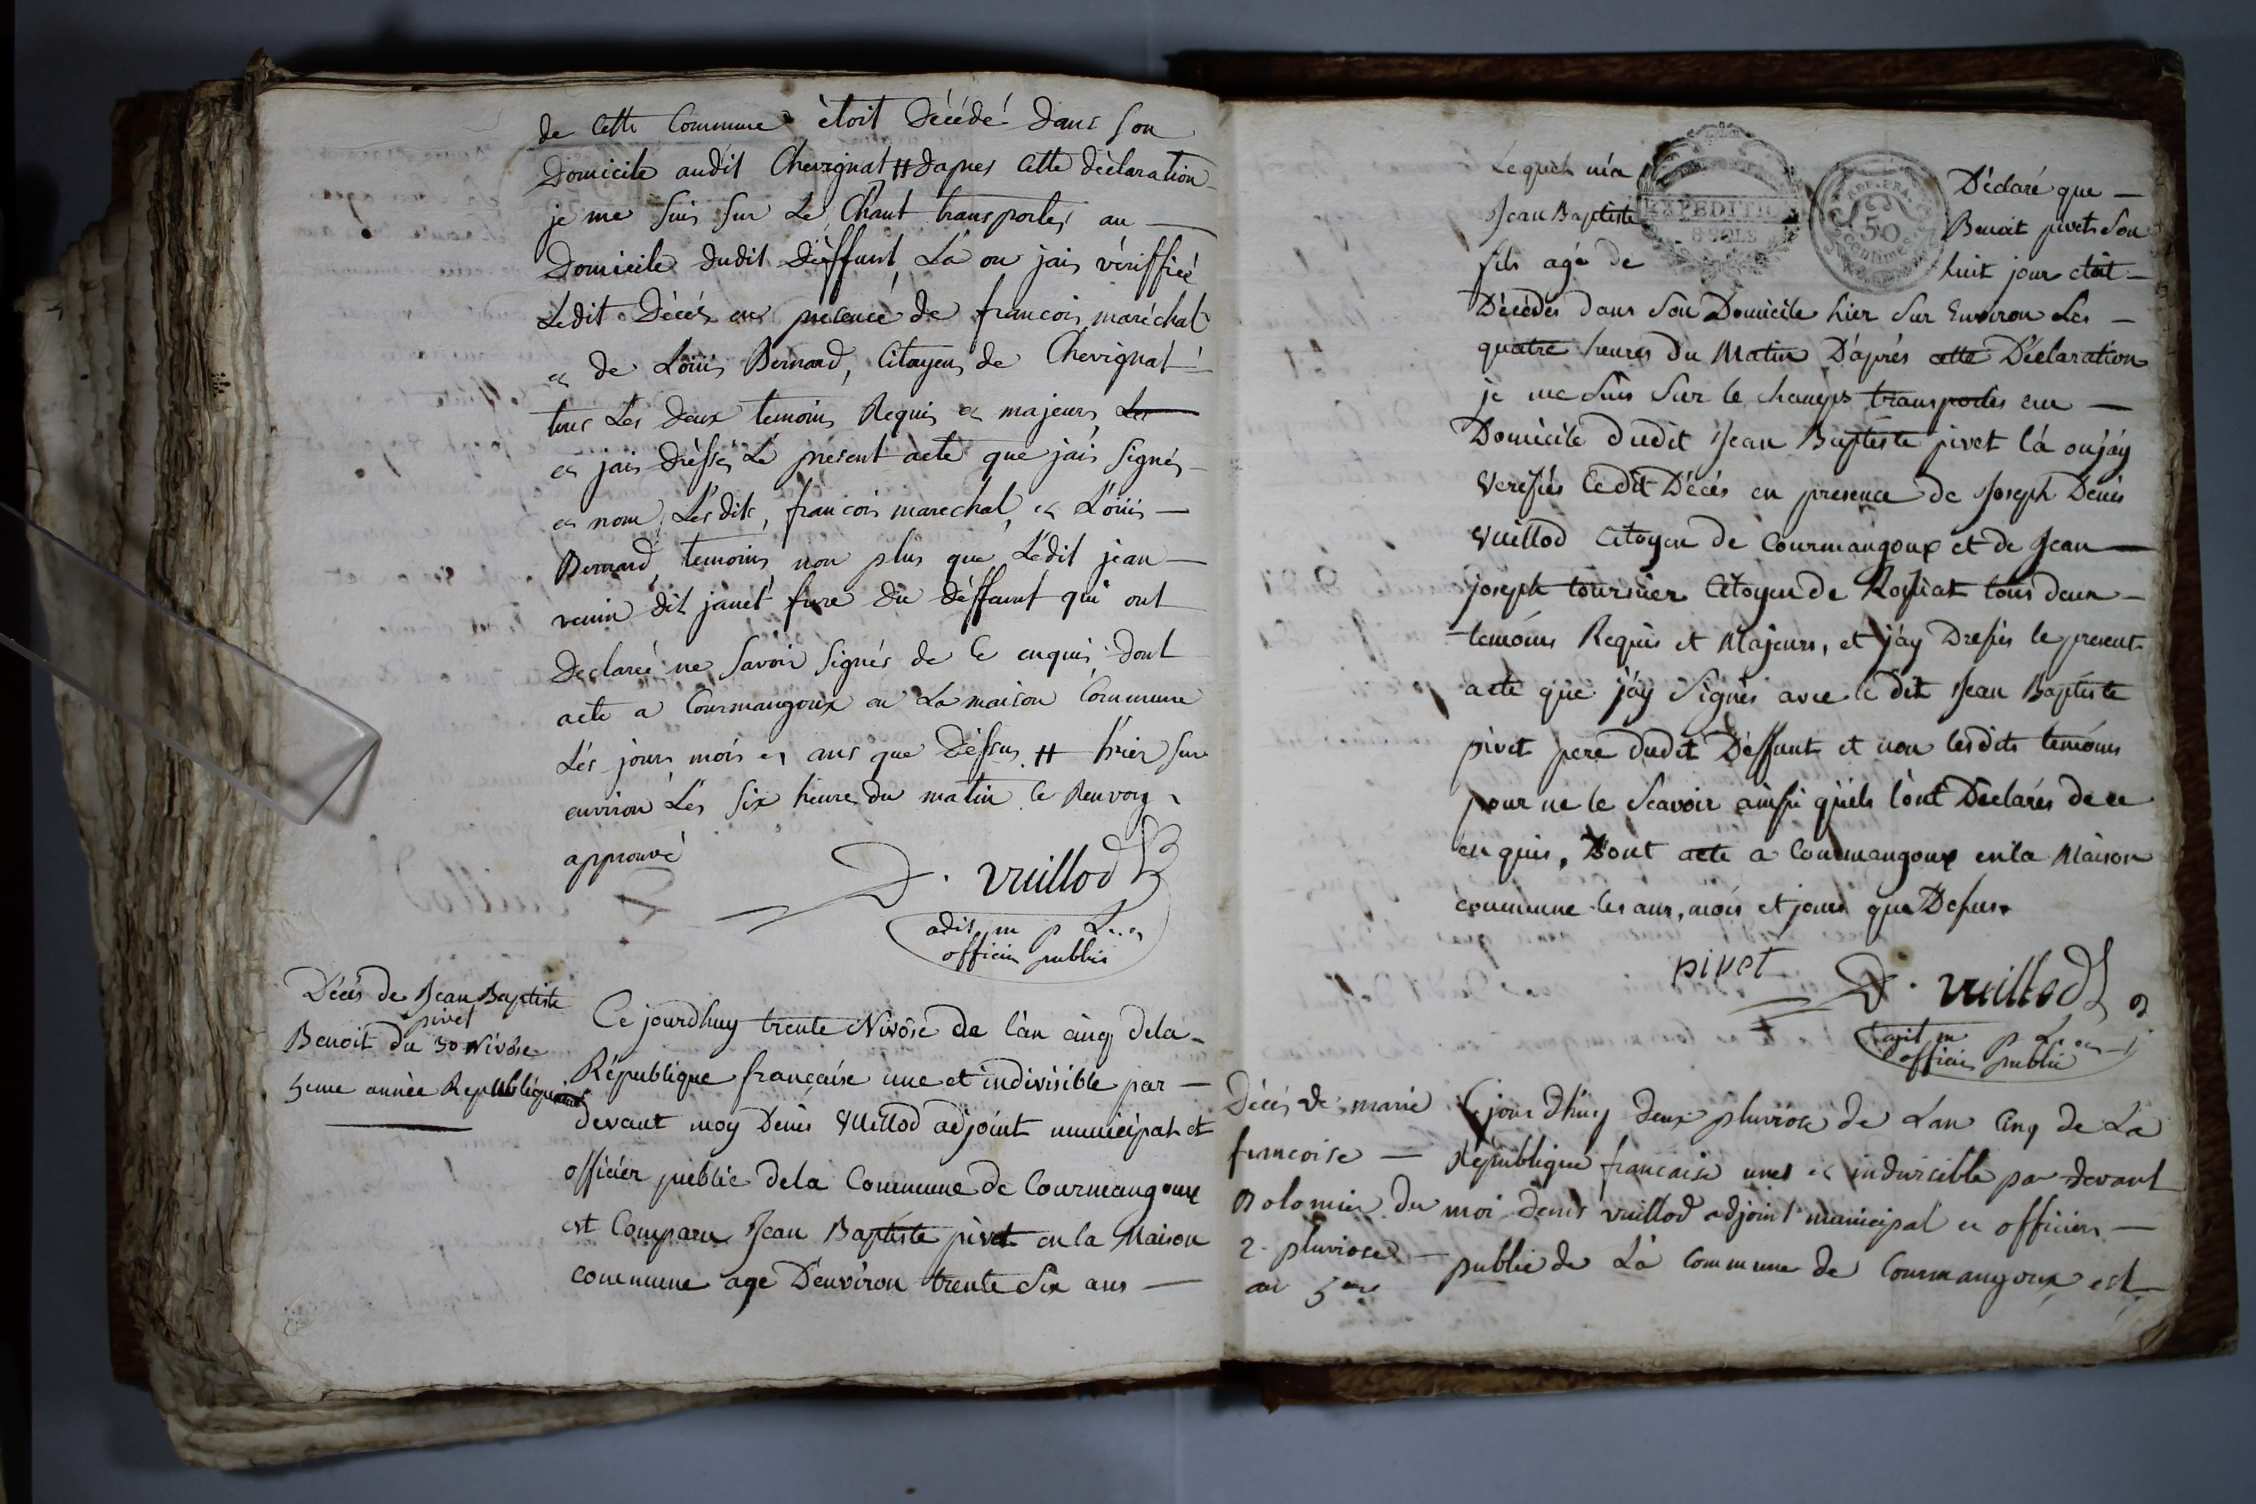 de cette Commune étoit Décédé dans son
Domicile audit Chevignat # dapres cette déclaration
je me suis sur Le Chant transportés au —
Domicile dudit Déffunt, La ou jais vériffiéé
Ledit Décés en presence de francois maréchal
et de Loüis Bernard, Citoyens de Chevignat
tous Les deux temoins Requis et majeurs, Les
et jais drèssé Le présent acte que jais signés
et nom Lesdits, francois marechal, et Loüis —
Bernard, temoins non plus que Ledit jean —
dit janet du déffunt qui ont
declaréé ne savoir signés de Ce enquis dont
acte a Courmangoux en La maison Commune
Lés jours mois et ans que Déssus. # hier sur
environ Lés six heure du matin le Renvoy
approuvé
D. vuillod
adjt m p
officier public
Décés de Jean Baptiste
pivet
Benoit du 30 Nivôse
5eme année Républiquaine
Ce jourdhuy trente Nivôse de l'an cinq dela
République française une et indivisible par —
devant moy Denis Vuillod adjoint municipal et
officier public dela Commune de Courmangoux
est Comparu Jean Baptiste pivet en la Maison
commune age D'environ trente Six ans —
Lequel m'a Déclaré que —
Jean Baptiste Benoit pivet Son
fils agé de huit jour etoit —
EXPEDITION
8 SOLS
50
centimes
Décédés dans Son Domicile hier Sur Environ Les —
quatre heures du Matin D'aprés cette Déclaration
je me Suis Sur le champs transportés au —
Domicile dudit Jean Baptiste pivet là ou j'ay
Verifiés Ledit Décés en presence de Joseph Denis
Vuillod Citoyen de Courmangoux et de Jean —
joseph tournier Citoyen de Rossiat tous deux —
temoins Requis et Majeurs, et j'ay Dressés le present
acte que j'ay Signés avec le dit Jean Baptiste
pivet pere dudit Déffunt et non lesdits temoins
pour ne le Scavoir ainsi qu'ils l'ont Déclarés de ce
enquis, Dont acte a Courmangoux en la Maison
commune les ans, mois et jours que Dessus.
pivet
D. vuillod
adjt m p
officier public
Décés de marie
francoise —
Bolomier du
2. pluviose —
an 5eme
Ce jour dhuy deux pluviose de Lan Cinq de La
République francaise unes et indivisible par devant
moi denis vuillod adjoint municipal et officier —
public de La Commune de Courmangoux est